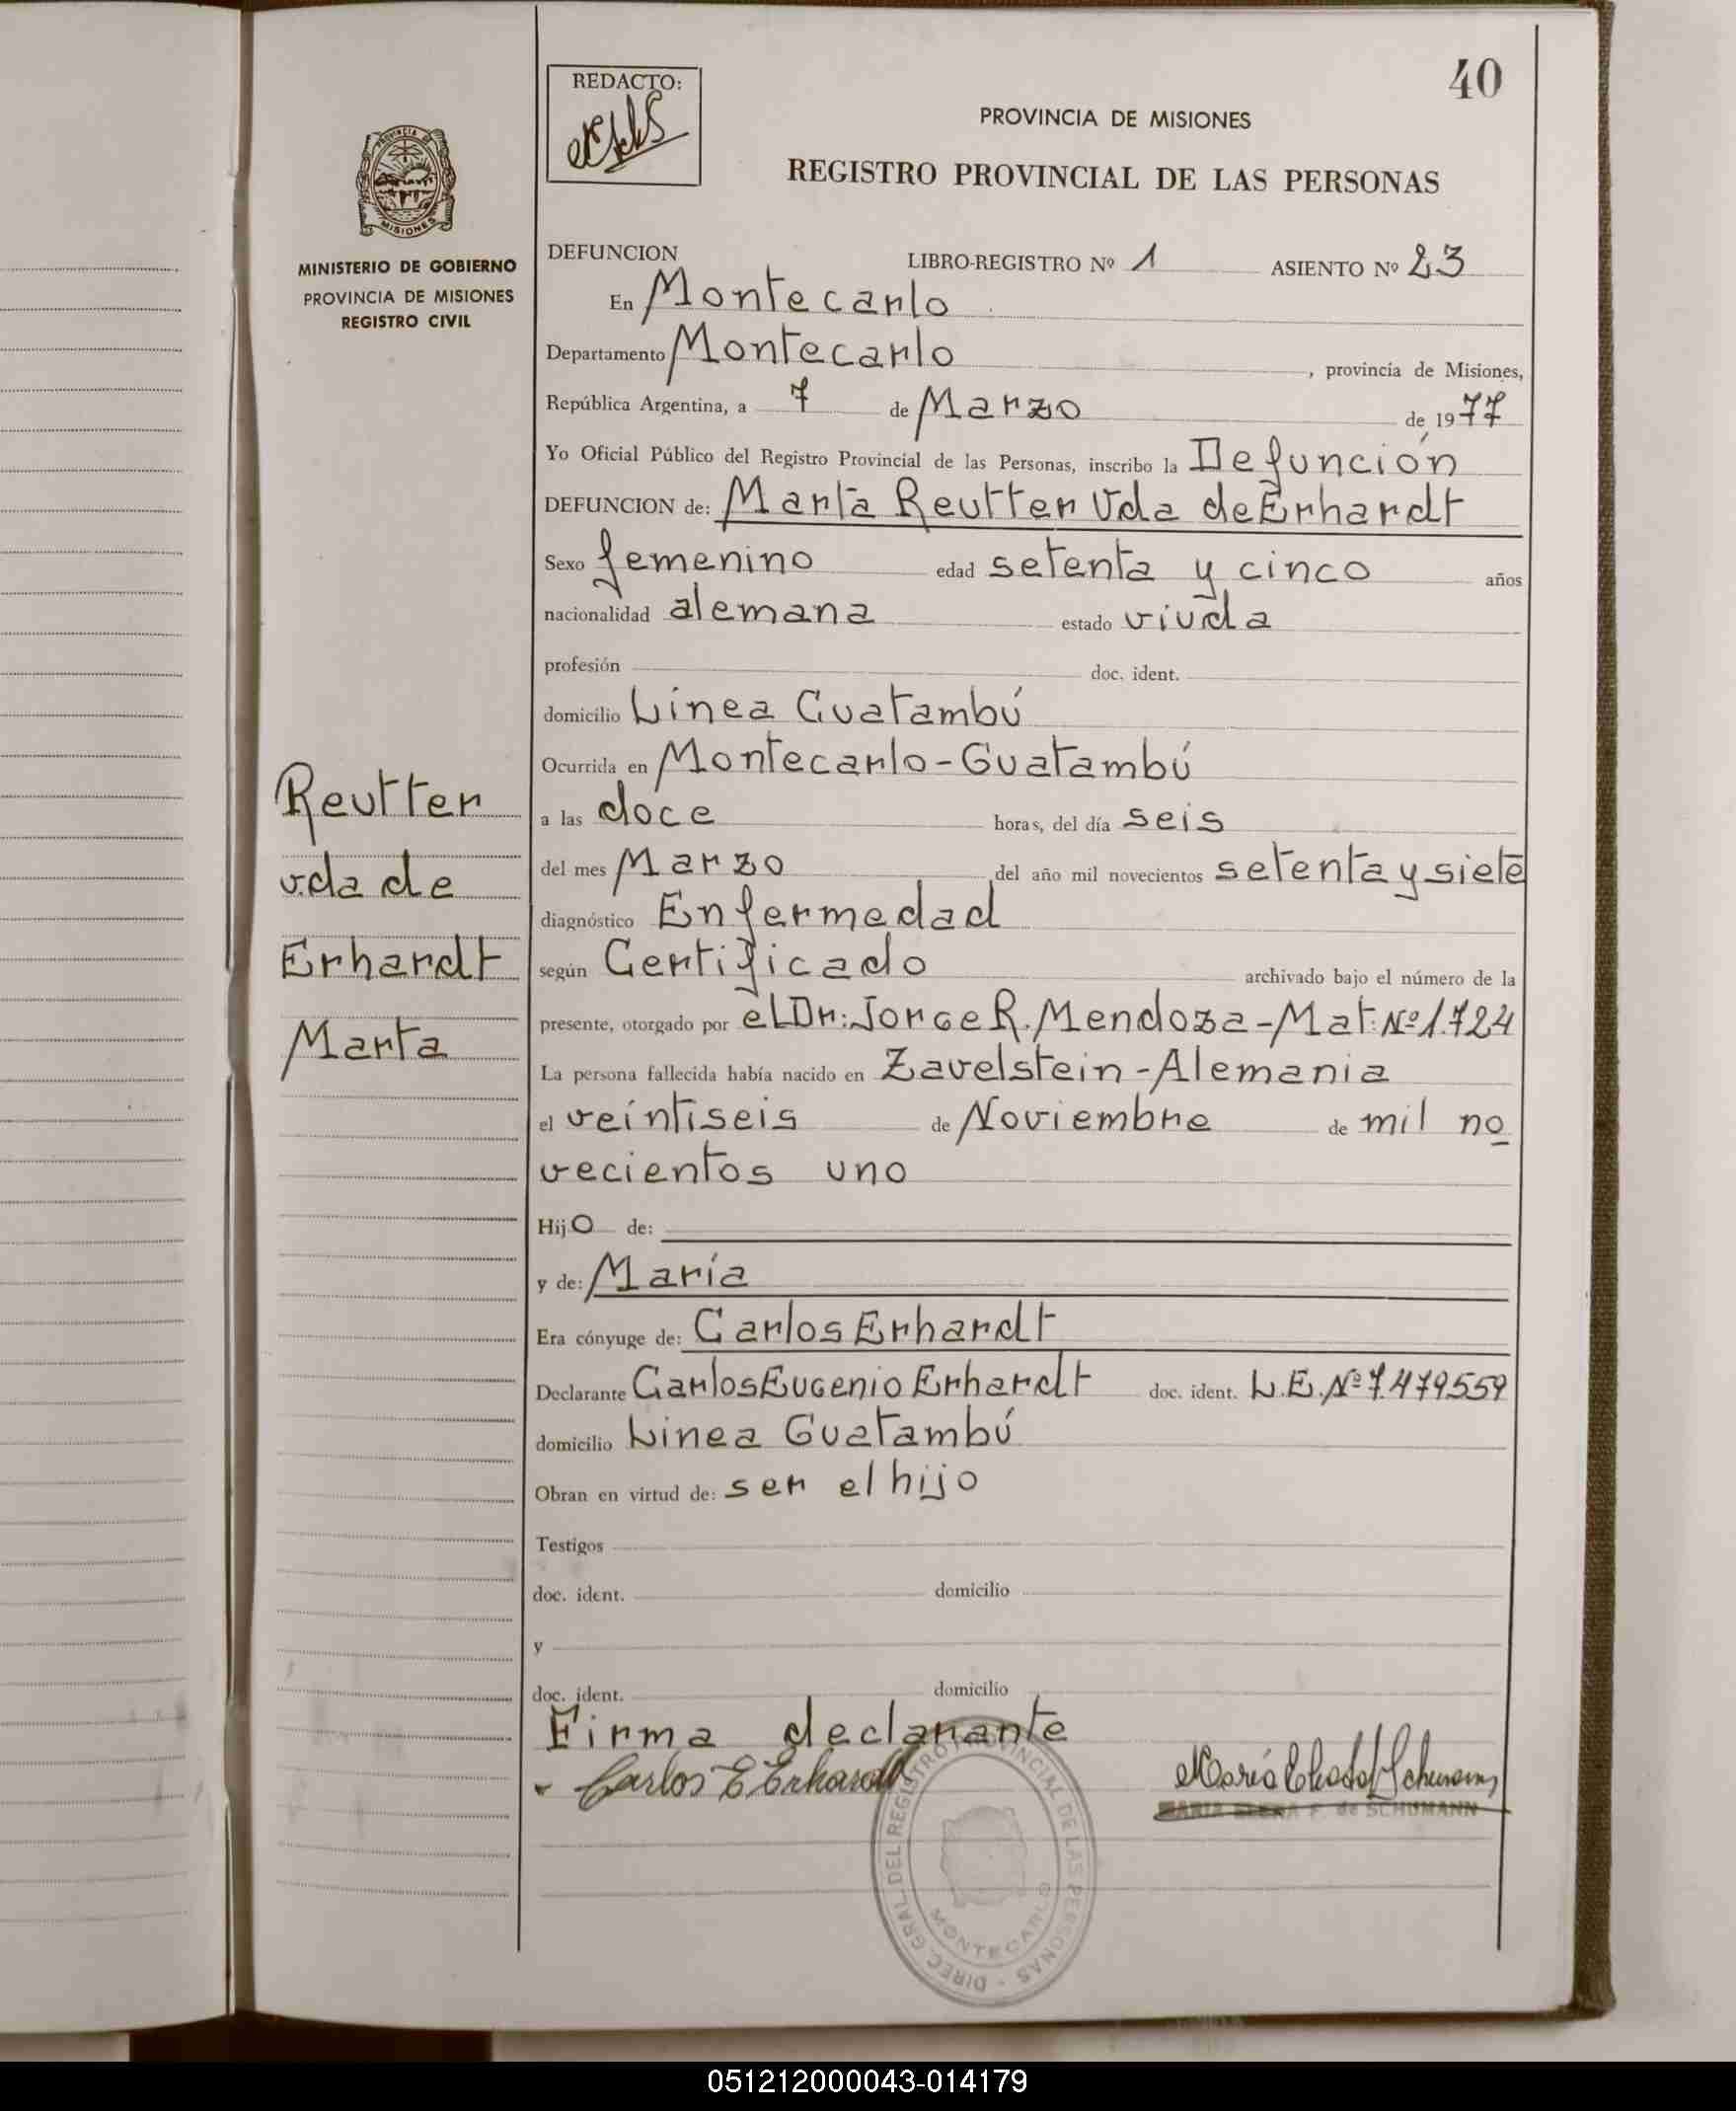 40
REDACTO:
PROVINCIA DE MISIONES
REGISTRO PROVINCIAL DE LAS PERSONAS
MINISTERIO DE GOBIERNO
PROVINCIA DE MISIONES
REGISTRO CIVIL
DEFUNCION LIBRO-REGISTRO Nº 1 ASIENTO Nº 23
En Montecarlo
Departamento Montecarlo, provincia de Misiones,
República Argentina, a 7 de Marzo de 1977
Yo Oficial Público del Registro Provincial de las Personas, inscribo la Defunción
DEFUNCION de: Marta Reutter Vda de Erhardt
Sexo femenino edad setenta y cinco años
nacionalidad alemana estado viuda
profesión doc. ident.
domicilio Línea Guatambú
Ocurrida en Montecarlo-Guatambú
a las doce horas, del día seis
del mes Marzo del año mil novecientos setenta y siete
diagnóstico Enfermedad
según Certificado archivado bajo el número de la
presente, otorgado por el Dr: Jorge R. Mendoza - Mat: Nº 1.724
La persona fallecida había nacido en Zavelstein - Alemania
el veintiseis de Noviembre de mil no
vecientos uno
Hijo de:
y de: María
Era cónyuge de: Carlos Erhardt
Declarante Carlos Eugenio Erhardt doc. ident. L.E. Nº 7.479.559
domicilio Linea Guatambú
Obran en virtud de: ser el hijo
Testigos
doc. ident. domicilio
y
doc. ident. domicilio
Firma declarante
Carlos E. Erhardt
MARIA ELENA F. de SCHUMANN
DIREC. GRAL DEL REGISTRO PROVINCIAL DE LAS PERSONAS -
MONTECARLO
Reutter
vda de
Erhardt
Marta
PROVINCIA DE
MISIONES
051212000043-014179